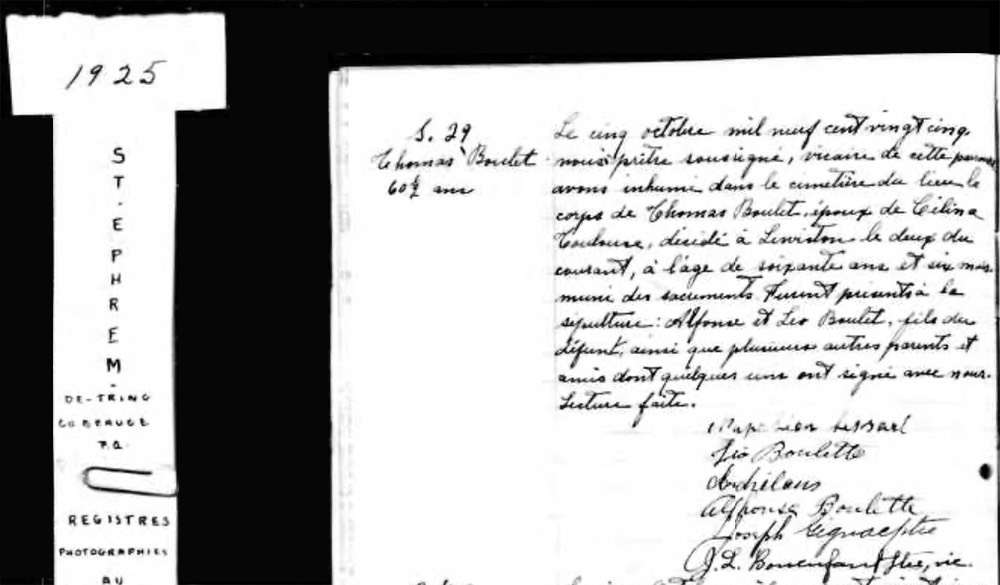 1925
ST. EPHREM.
DE-TRING
CO BEAUCE
P.Q.
REGISTRES
PHOTOGRAPHIES
AU
S. 29
Thomas Boulet
60½ ans
Le cinq octobre mil neuf cent vingt cinq,
nous prêtre soussigné, vicaire de cette paroisse
avons inhumé dans le cimetière du lieu le
corps de Thomas Boulet, époux de Célina
Toulouse, décédé à Lewiston le deux du
courant, à l'âge de soixante ans et six mois
muni des sacrements. Furent présents à la
sépulture: Alfonse et Léo Boulet, fils du
défunt, ainsi que plusieurs autres parents et
amis dont quelques uns ont signé avec nous.
Lecture faite.
Lessard
Léo Boulette
Archélaus
Alfonse Boulette
Joseph
J. L. Bonenfant Ptre, vic.